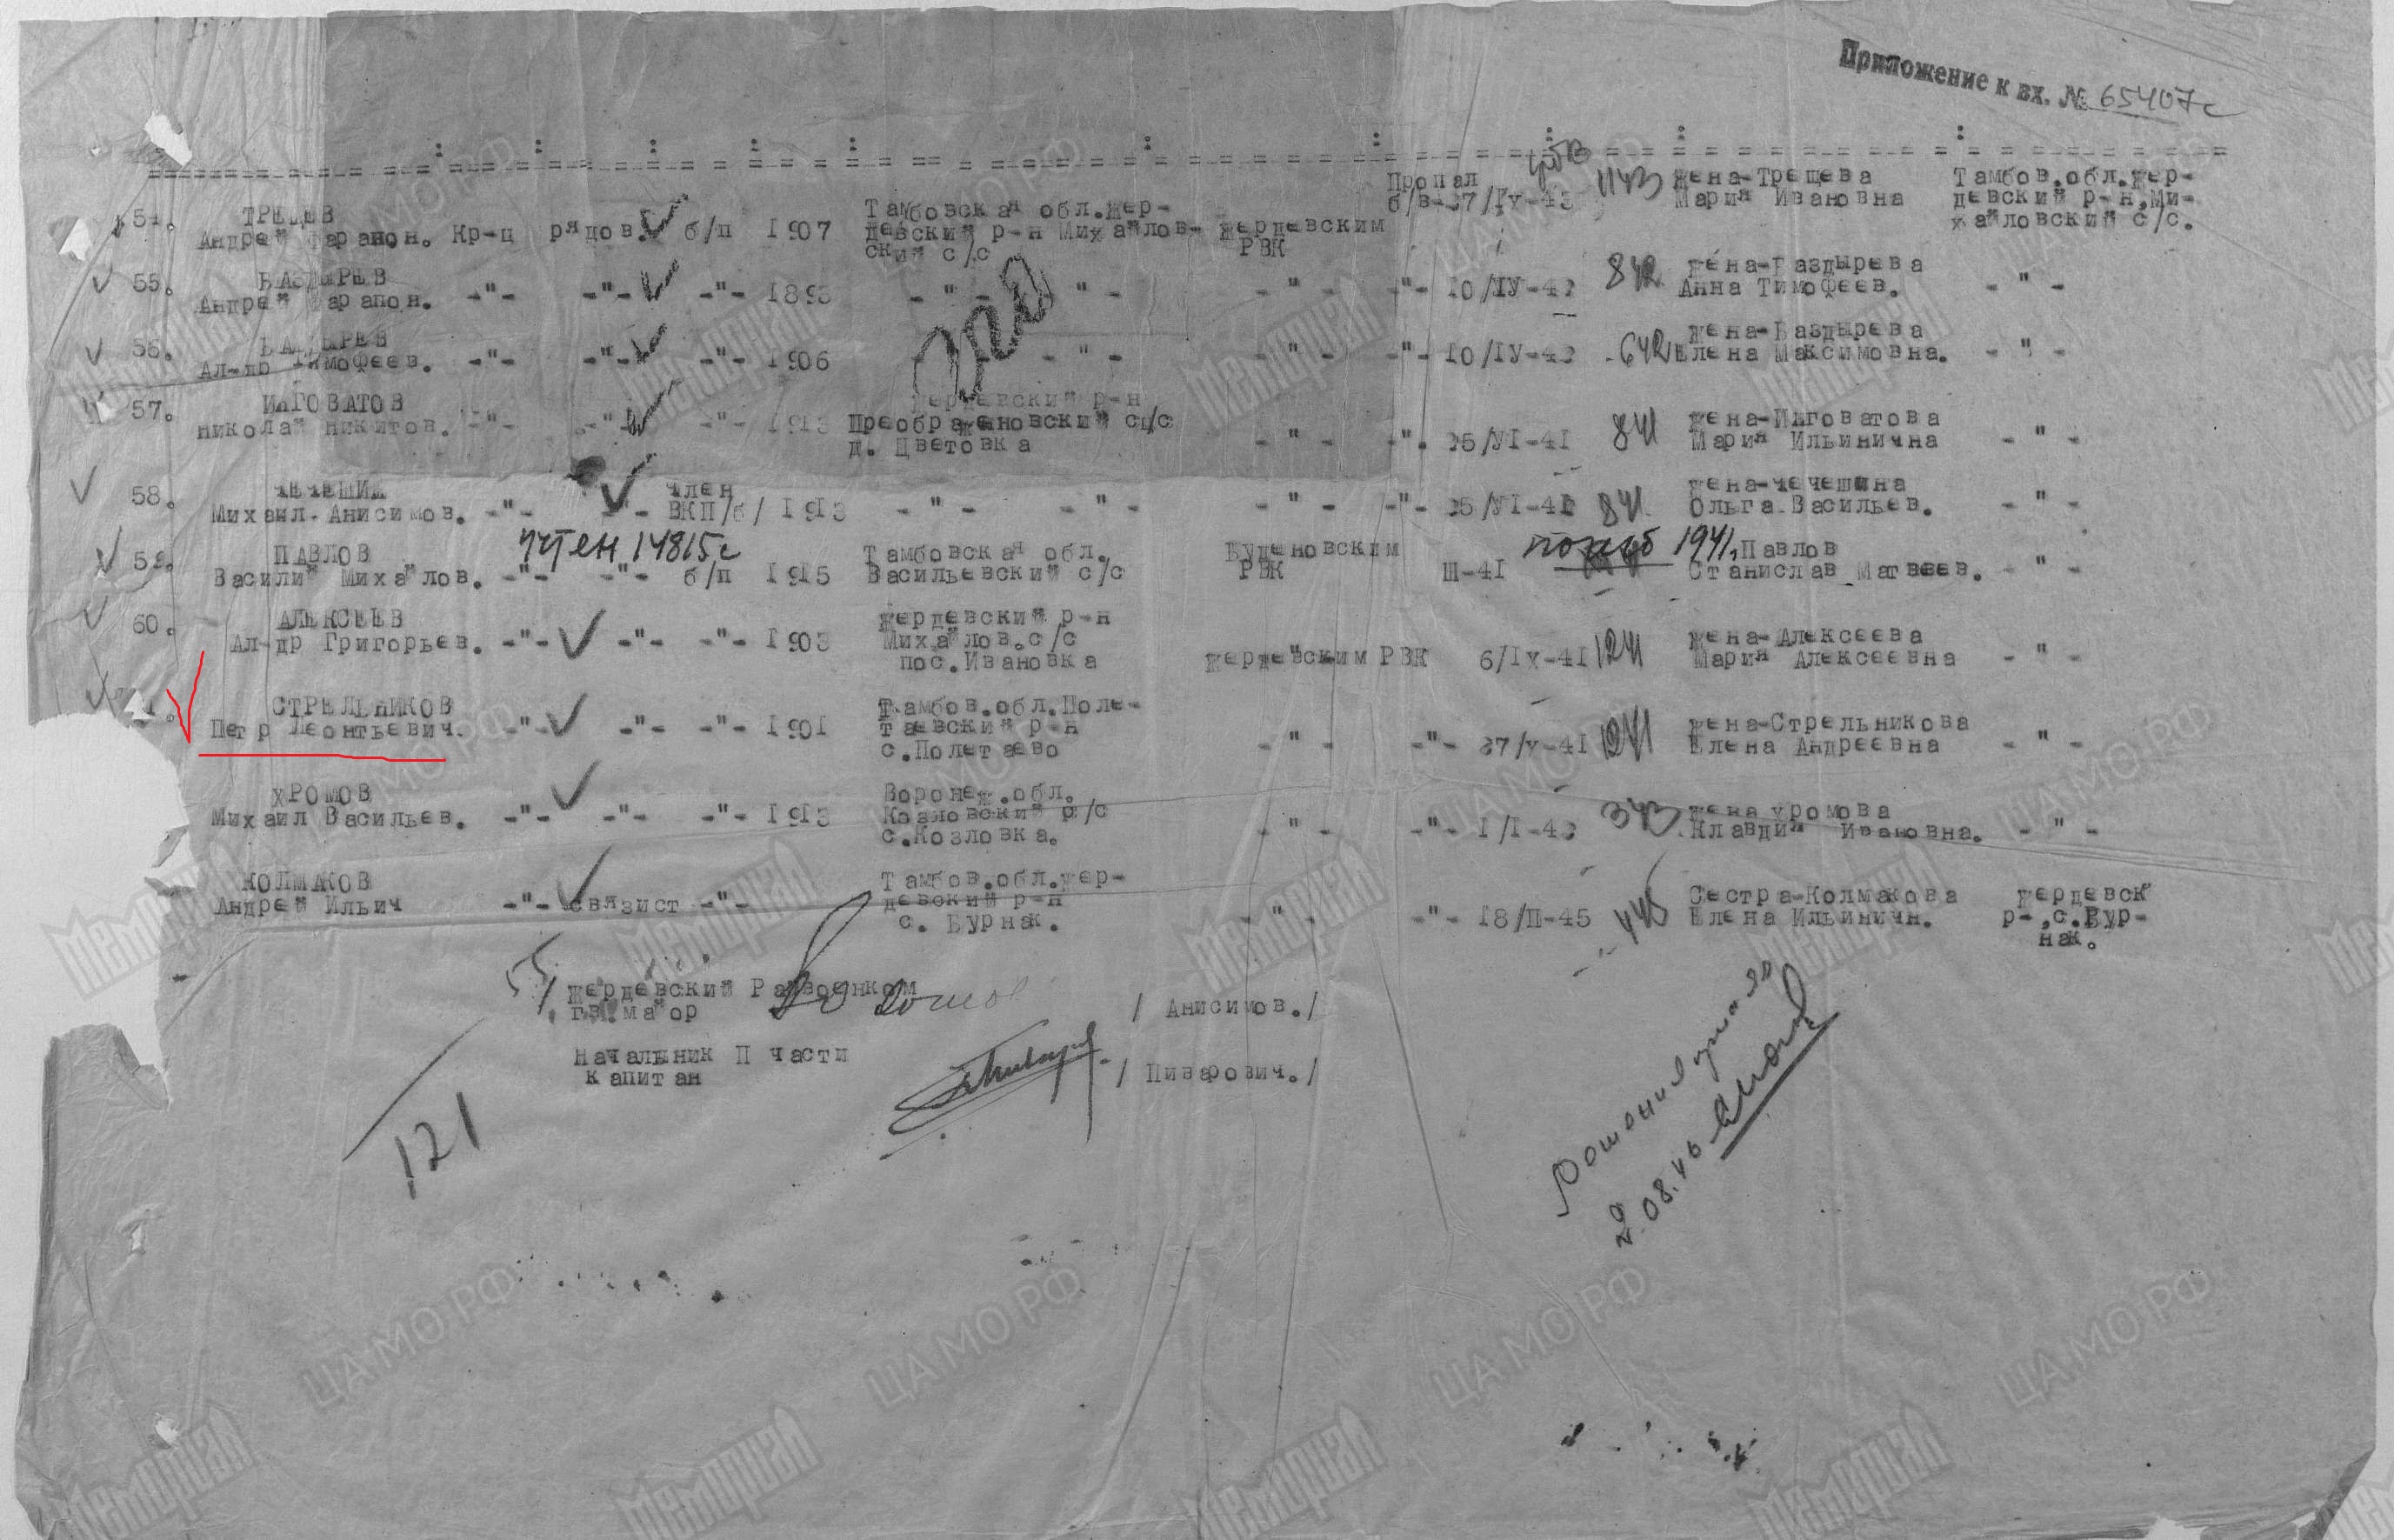 Приложение к вх. № 65407с
54. ТРЕЩЕВ Пропал 1143 жена-Трещева Тамбов.обл.Жер-
Андрей Кр-ц рядов. б/п 1907 Тамбовская обл.Жер- Жердевским б/в- Мария Ивановна девский р-н,Ми-
девский р-н Михайлов- РВК хайловский с/с.
ский с/с
55. БАЗДЫРЕВ жена-Баздырева
Андрей -"- -"- -"- 1893 -"- -"- -"- -"- 10/IУ-42 842 Анна Тимофеев. -"-
56. БАЗДЫРЕВ жена-Баздырева
Ал-др Тимофеев. -"- -"- -"- 1906 -"- -"- -"- 10/IУ-42 642 Елена Максимовна. -"-
57. ИЛГОВАТОВ Жердевский р-н жена-Илговатова
Николай Никитов. -"- -"- -"- 1913 Преображеновский сп/с -"- -". 25/УI-41 841 Мария Ильинична -"-
д. Цветовка
58. ЧЕЧЕШИН член жена-Чечешина
Михаил-Анисимов. -"- -"- ВКП/б/ 1913 -"- -"- -"- -"- 25/УI-41 841 Ольга.Васильев. -"-
59. ПАВЛОВ учтен 14815с Тамбовская обл. Буденовским погиб 1941, Павлов
Василий Михайлов. -"- -"- б/п 1915 Васильевский с/с РВК Ш-41 Станислав Матвеев. -"-
60. АЛЕКСЕЕВ Жердевский р-н
Ал-др Григорьев. -"- -"- -"- 1903 Михайлов.с/с жена-Алексеева
пос.Ивановка Жердевским РВК 6/IХ-41 1241 Мария Алексеевна -"-
СТРЕЛЬНИКОВ Тамбов.обл.Поле-
Петр Леонтьевич. -"- -"- -"- 1901 таевский р-н жена-Стрельникова
с.Полетаево -"- -"- 27/Х-41 1241 Елена Андреевна -"-
ХРОМОВ Воронеж.обл.
Михаил Васильев. -"- -"- -"- 1913 Козловский с/с жена Хромова
с.Козловка. -"- -"- 1/I-43 343 Клавдия Ивановна. -"-
КОЛМАКОВ Тамбов.обл.Жер-
Андрей Ильич -"- связист -"- девский р-н Сестра-Колмакова Жердевск
с. Бурнак. -"- -"- 18/П-45 445 Елена Ильиничн. р-,с.Бур-
нак.
Жердевский Райвоенком
гв.майор / Анисимов./
Начальник П части
капитан / Пиварович./
121
2.08.46